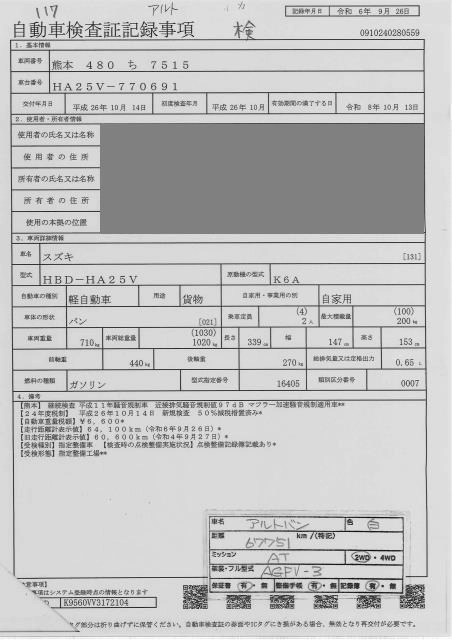 117 アルト カ
記録年月日 令和 6年 9月 26日
自動車検査証記録事項 検 0910240280559
1．基本情報
車両番号 熊本 480 ち 7515
車台番号 HA25V-770691
交付年月日 平成 26年 10月 14日 初度検査年月 平成 26年 10月 有効期間の満了する日 令和 8年 10月 13日
2．使用者・所有者情報
使用者の氏名又は名称
使用者の住所
所有者の氏名又は名称
所有者の住所
使用の本拠の位置
3．車両詳細情報
車名 スズキ [131]
型式 HBD-HA25V 原動機の型式 K6A
自動車の種別 軽自動車 用途 貨物 自家用・事業用の別 自家用
車体の形状 バン [021] 乗車定員 (4) 2人 最大積載量 (100) 200kg
車両重量 710kg 車両総重量 (1030) 1020kg 長さ 339cm 幅 147cm 高さ 153cm
前軸重 440kg 後軸重 270kg 総排気量又は定格出力 0.65L
燃料の種類 ガソリン 型式指定番号 16405 類別区分番号 0007
4．備考
【熊本】 継続検査 平成11年騒音規制車 近接排気騒音規制値97dB マフラー加速騒音規制適用車**
【24年度税制】 平成26年10月14日 新規検査 50％減税措置済み*
【自動車重量税額】¥6,600*
【走行距離計表示値】64,100km（令和6年9月26日）*
【旧走行距離計表示値】60,600km（令和4年9月27日）*
【受検種別】指定整備車 【検査時の点検整備実施状況】点検整備記録簿記載あり*
【受検形態】指定整備工場**
車名 アルトバン 色 白
距離 67751 km／(特記)
ミッション AT 2WD・4WD
架装・フル型式 AGPV-3
保証書 有・無 整備手帳 有・無 記録簿 有・無
意事項】
事項はシステム登録時点の情報となります
ID K9560VV3172104
タグ部分は折り曲げずに保管ください。自動車検査証の券面やICタグにき損がある場合、無効となり再交付が必要です。